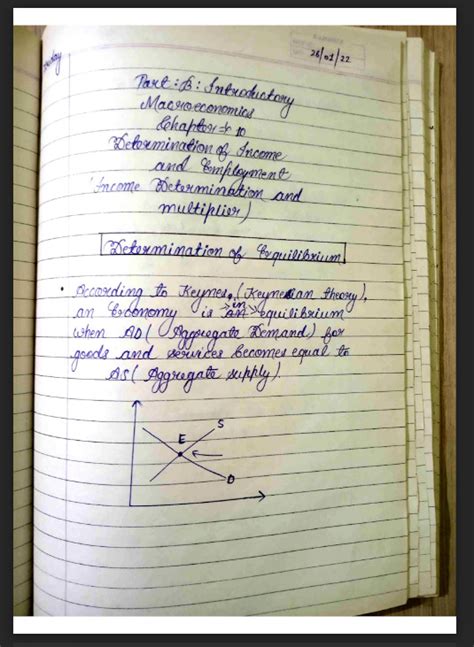 26/01/22
Part : B : Introductory
Macroeconomics
Chapter : 10
Determination of Income
and Employment
(Income Determination and
multiplier)
Determination of Equilibrium
• According to Keynes, (Keynesian theory),
an Economy is in an equilibrium
when AD ( Aggregate Demand) for
goods and services becomes equal to
AS ( Aggregate supply).
S
E
D